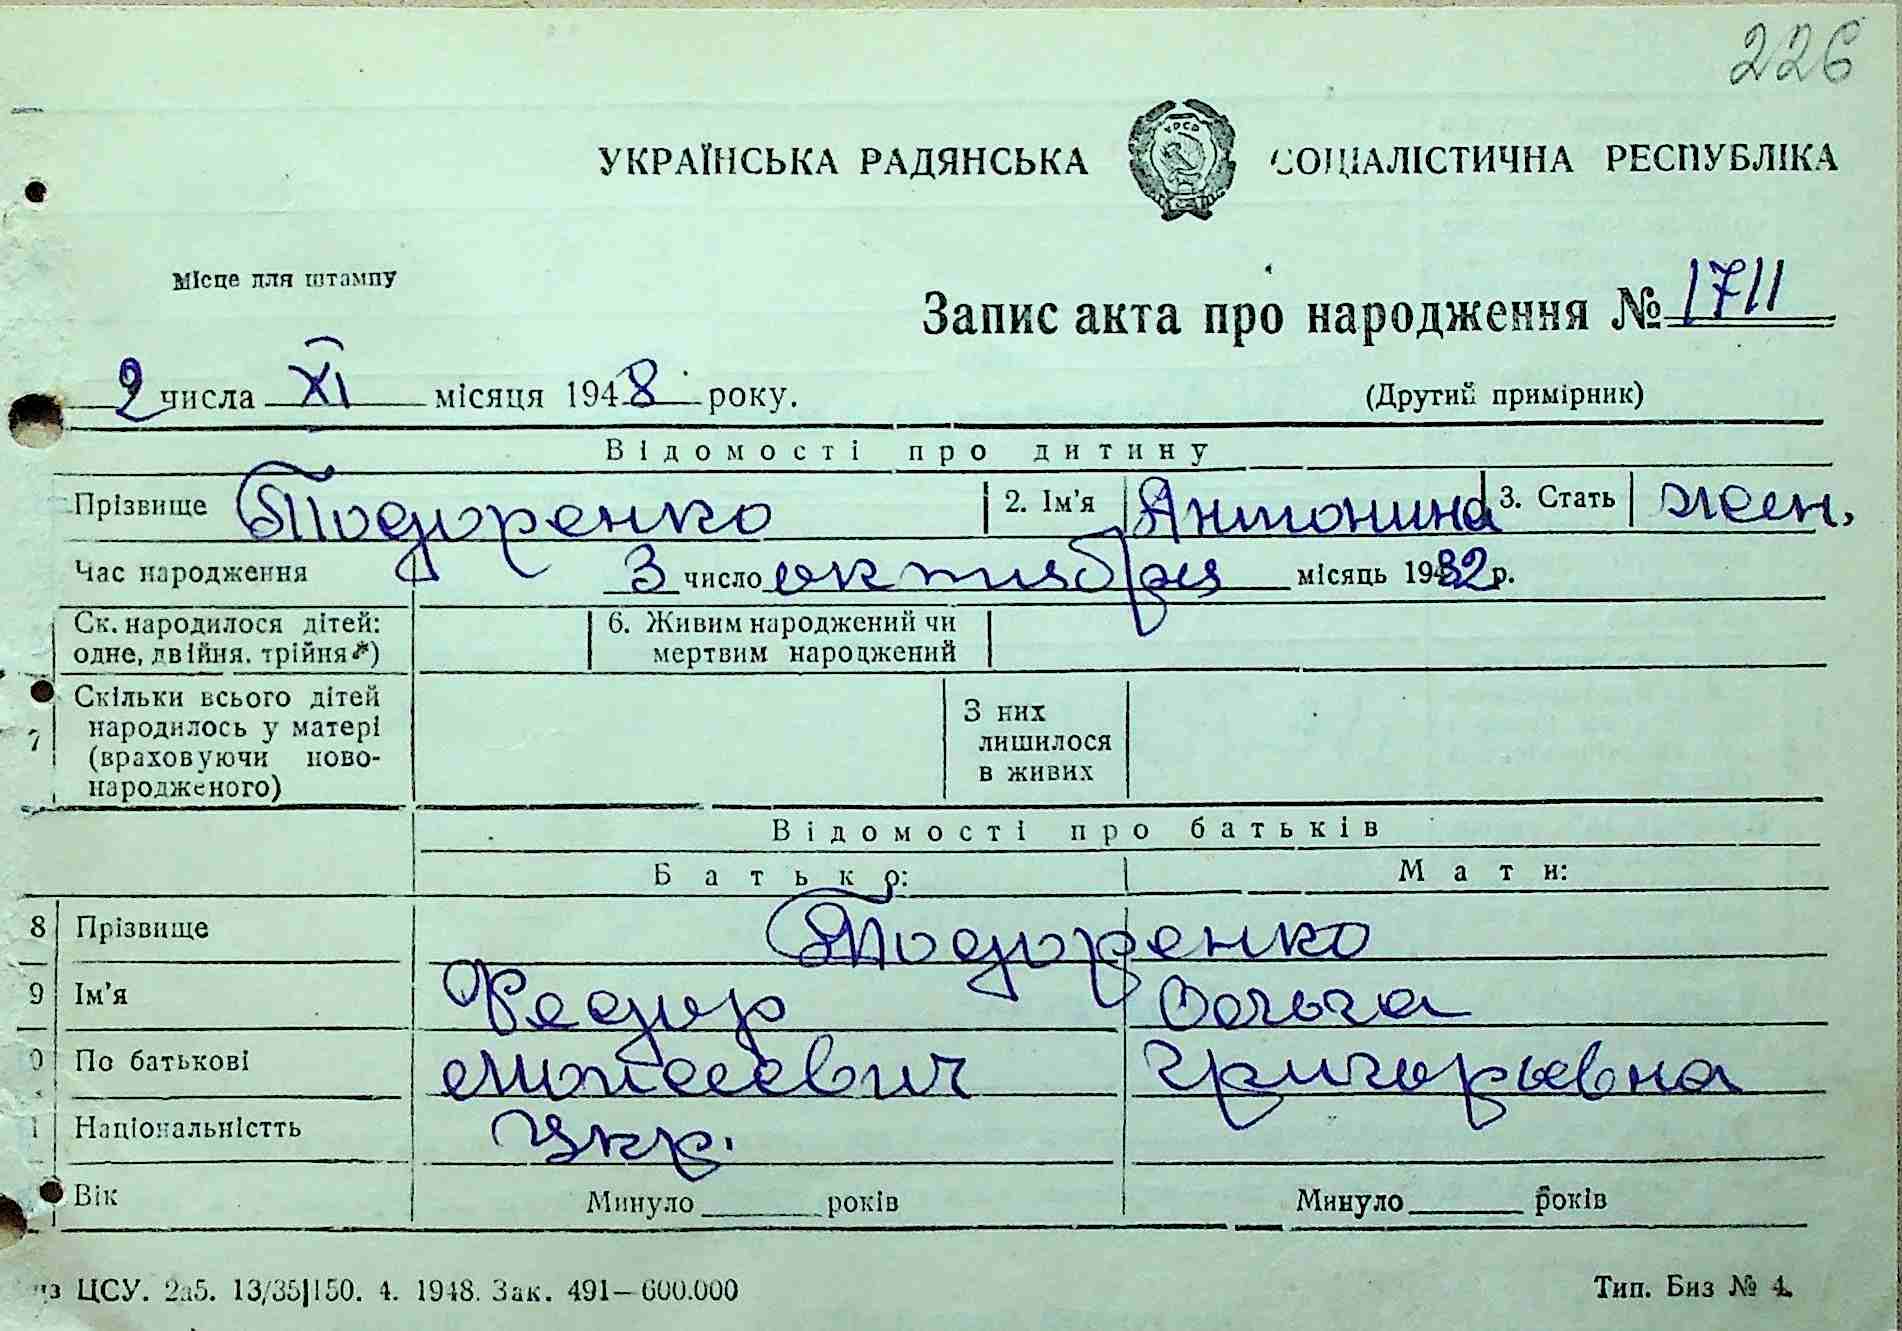 226
УКРАЇНСЬКА РАДЯНСЬКА СОЦІАЛІСТИЧНА РЕСПУБЛІКА
Місце для штампу
Запис акта про народження № 1711
2 числа XI місяця 1948 року.
(Другий примірник)
Відомості про дитину
Прізвище Тодоренко 2. Ім'я Антонина 3. Стать жен.
Час народження 3 число октября місяць 1932 р.
Ск. народилося дітей: одне, двійня, трійня*)
6. Живим народжений чи мертвим народжений
7 Скільки всього дітей народилось у матері (враховуючи новонародженого)
З них лишилося в живих
Відомості про батьків
Батько: Мати:
8 Прізвище Тодоренко
9 Ім'я Федор Ольга
0 По батькові Григорьевна
1 Національністть Укр.
Вік Минуло років Минуло років
ЦСУ. 2а5. 13/35|150. 4. 1948. Зак. 491—600.000
Тип. Биз № 4.